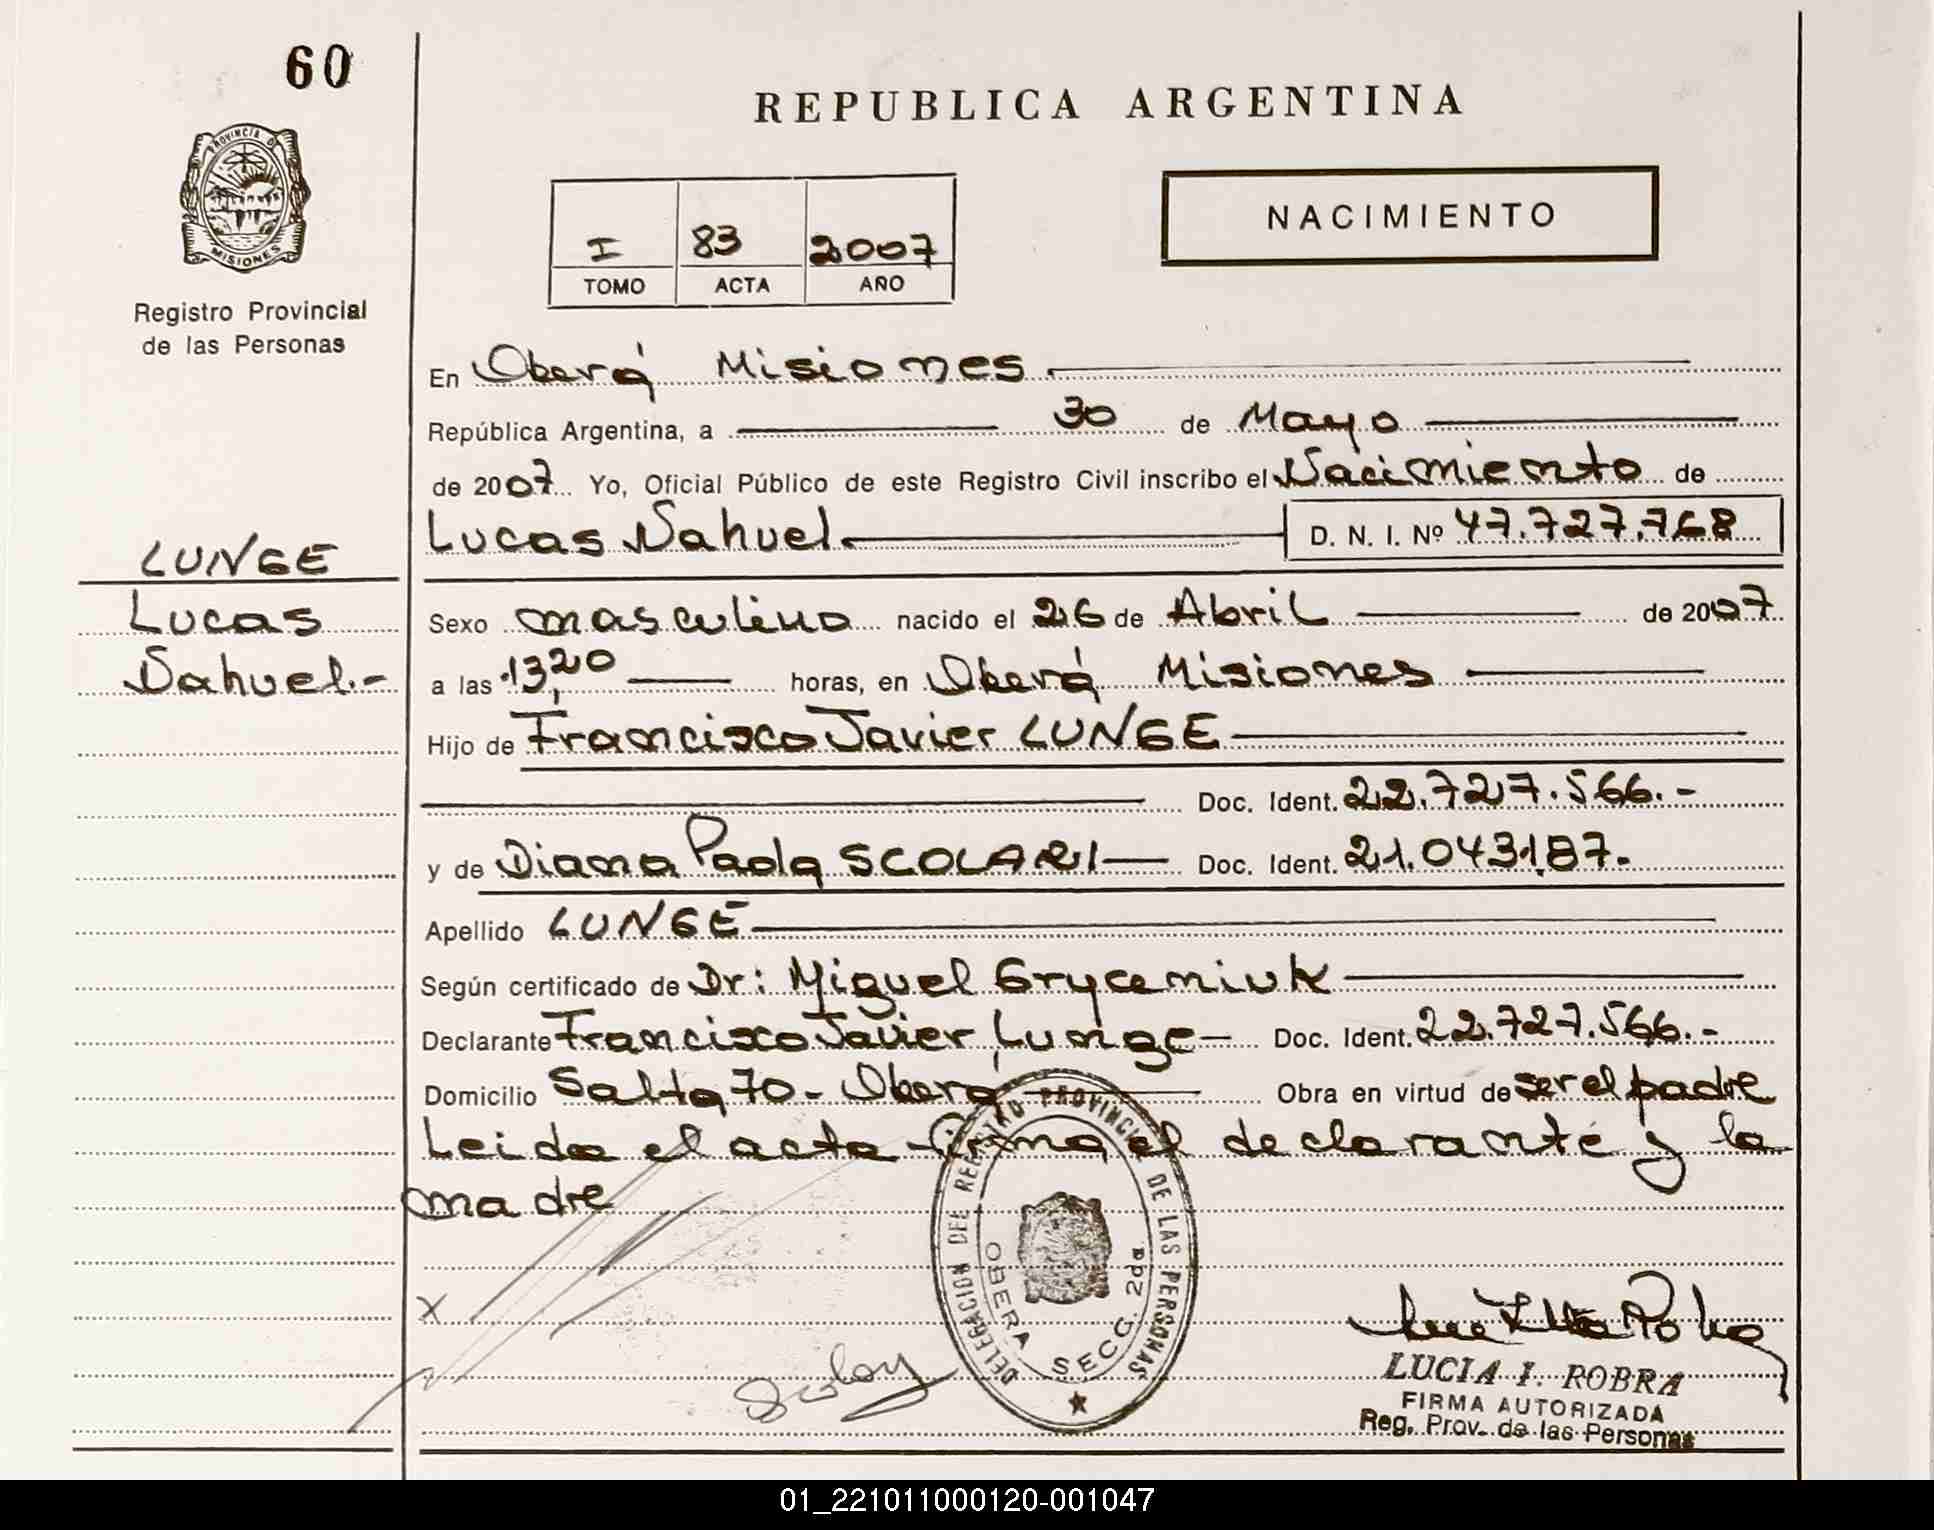 60
REPUBLICA ARGENTINA
PROVINCIA DE
MISIONES
Registro Provincial
de las Personas
NACIMIENTO
I 83 2007
TOMO ACTA AÑO
En Oberá Misiones
República Argentina, a 30 de Mayo
de 2007 Yo, Oficial Público de este Registro Civil inscribo el Nacimiento de
Lucas Nahuel.
D. N. I. Nº 47.727.768
LUNGE
Lucas
Nahuel.-
Sexo masculino nacido el 26 de Abril de 2007
a las 13,20 horas, en Oberá Misiones
Hijo de Francisco Javier LUNGE
Doc. Ident. 22.727.566.-
y de Diana Paola SCOLARI Doc. Ident. 21.043.187.-
Apellido LUNGE
Según certificado de Dr: Miguel Gryceniuk
Declarante Francisco Javier Lunge Doc. Ident. 22.727.566.-
Domicilio Salta 70 - Oberá Obra en virtud de ser el padre
Leida el acta firma el declarante y la
madre
X
DELEGACION DEL REGISTRO PROVINCIAL DE LAS PERSONAS
OBERA SECC. 2da
LUCIA I. ROBRA
FIRMA AUTORIZADA
Reg. Prov. de las Personas
01_221011000120-001047